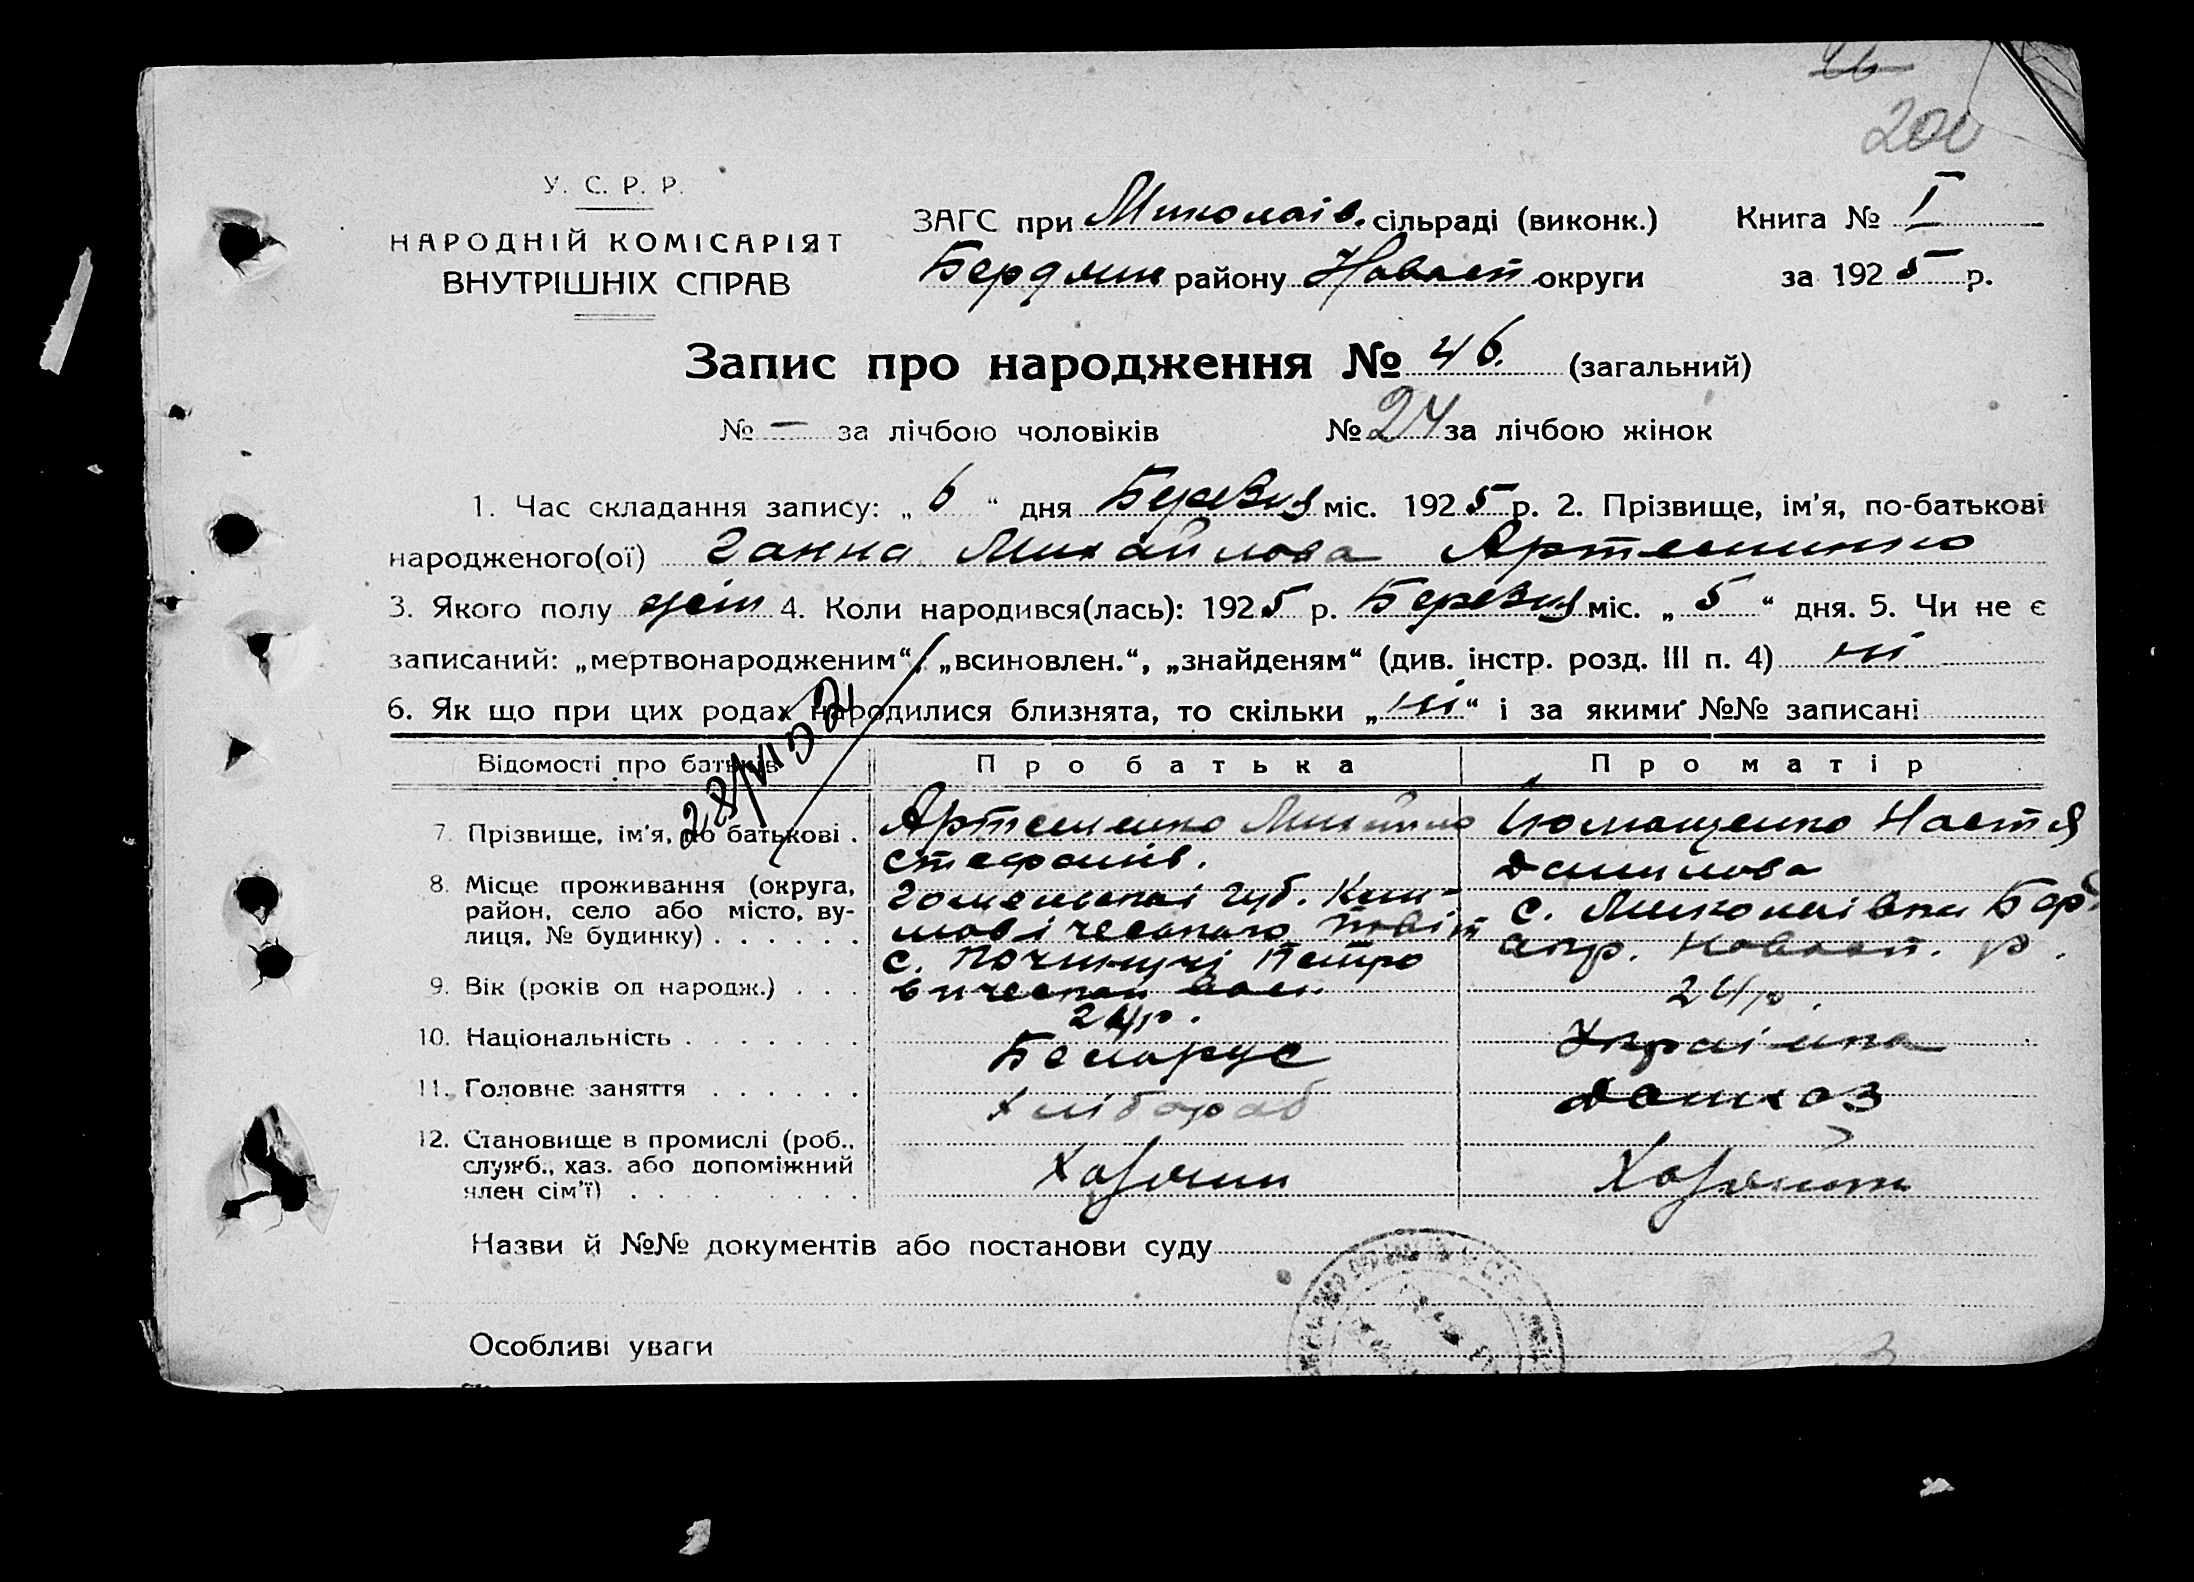 46
200
У. С. Р. Р.
НАРОДНІЙ КОМІСАРІЯТ
ВНУТРІШНІХ СПРАВ
ЗАГС при Миколаів. сільраді (виконк.) Книга № I
Бердянс району округи за 1925 р.
Запис про народження № 46. (загальний)
№ — за лічбою чоловіків № 24 за лічбою жінок
1. Час складання запису: „ 6 “ дня Березня міс. 1925 р. 2. Прізвище, ім’я, по-батькові
народженого(ої) Ганна Михайлова Артеменко
3. Якого полу жін 4. Коли народився(лась): 1925 р. Березня міс. „ 5 “ дня. 5. Чи не є
записаний: „мертвонародженим“, „всиновлен.“, „знайденям“ (див. інстр. розд. III п. 4) ні
6. Як що при цих родах народилися близнята, то скільки „ ні “ і за якими №№ записані
Відомості про батьків Про батька Про матір
7. Прізвище, ім’я, по батькові . Артеменко Михайло Настя
Стефанів. Данилова
8. Місце проживання (округа, район, село або місто, вулиця, № будинку) . . . . . . Гомельскоі губ. повіт с. Миколаівка Бер
с. окр. р.
9. Вік (років од народж.) . . . 24 р. 24 р.
10. Національність . . . . . . . Беларус Украінка
11. Головне заняття . . . . . . Хлібороб Домхоз
12. Становище в промислі (роб., служб., хаз. або допоміжний член сім’ї) . . . . . . . . . Хазяин Хазяйка
Назви й №№ документів або постанови суду
Особливі уваги